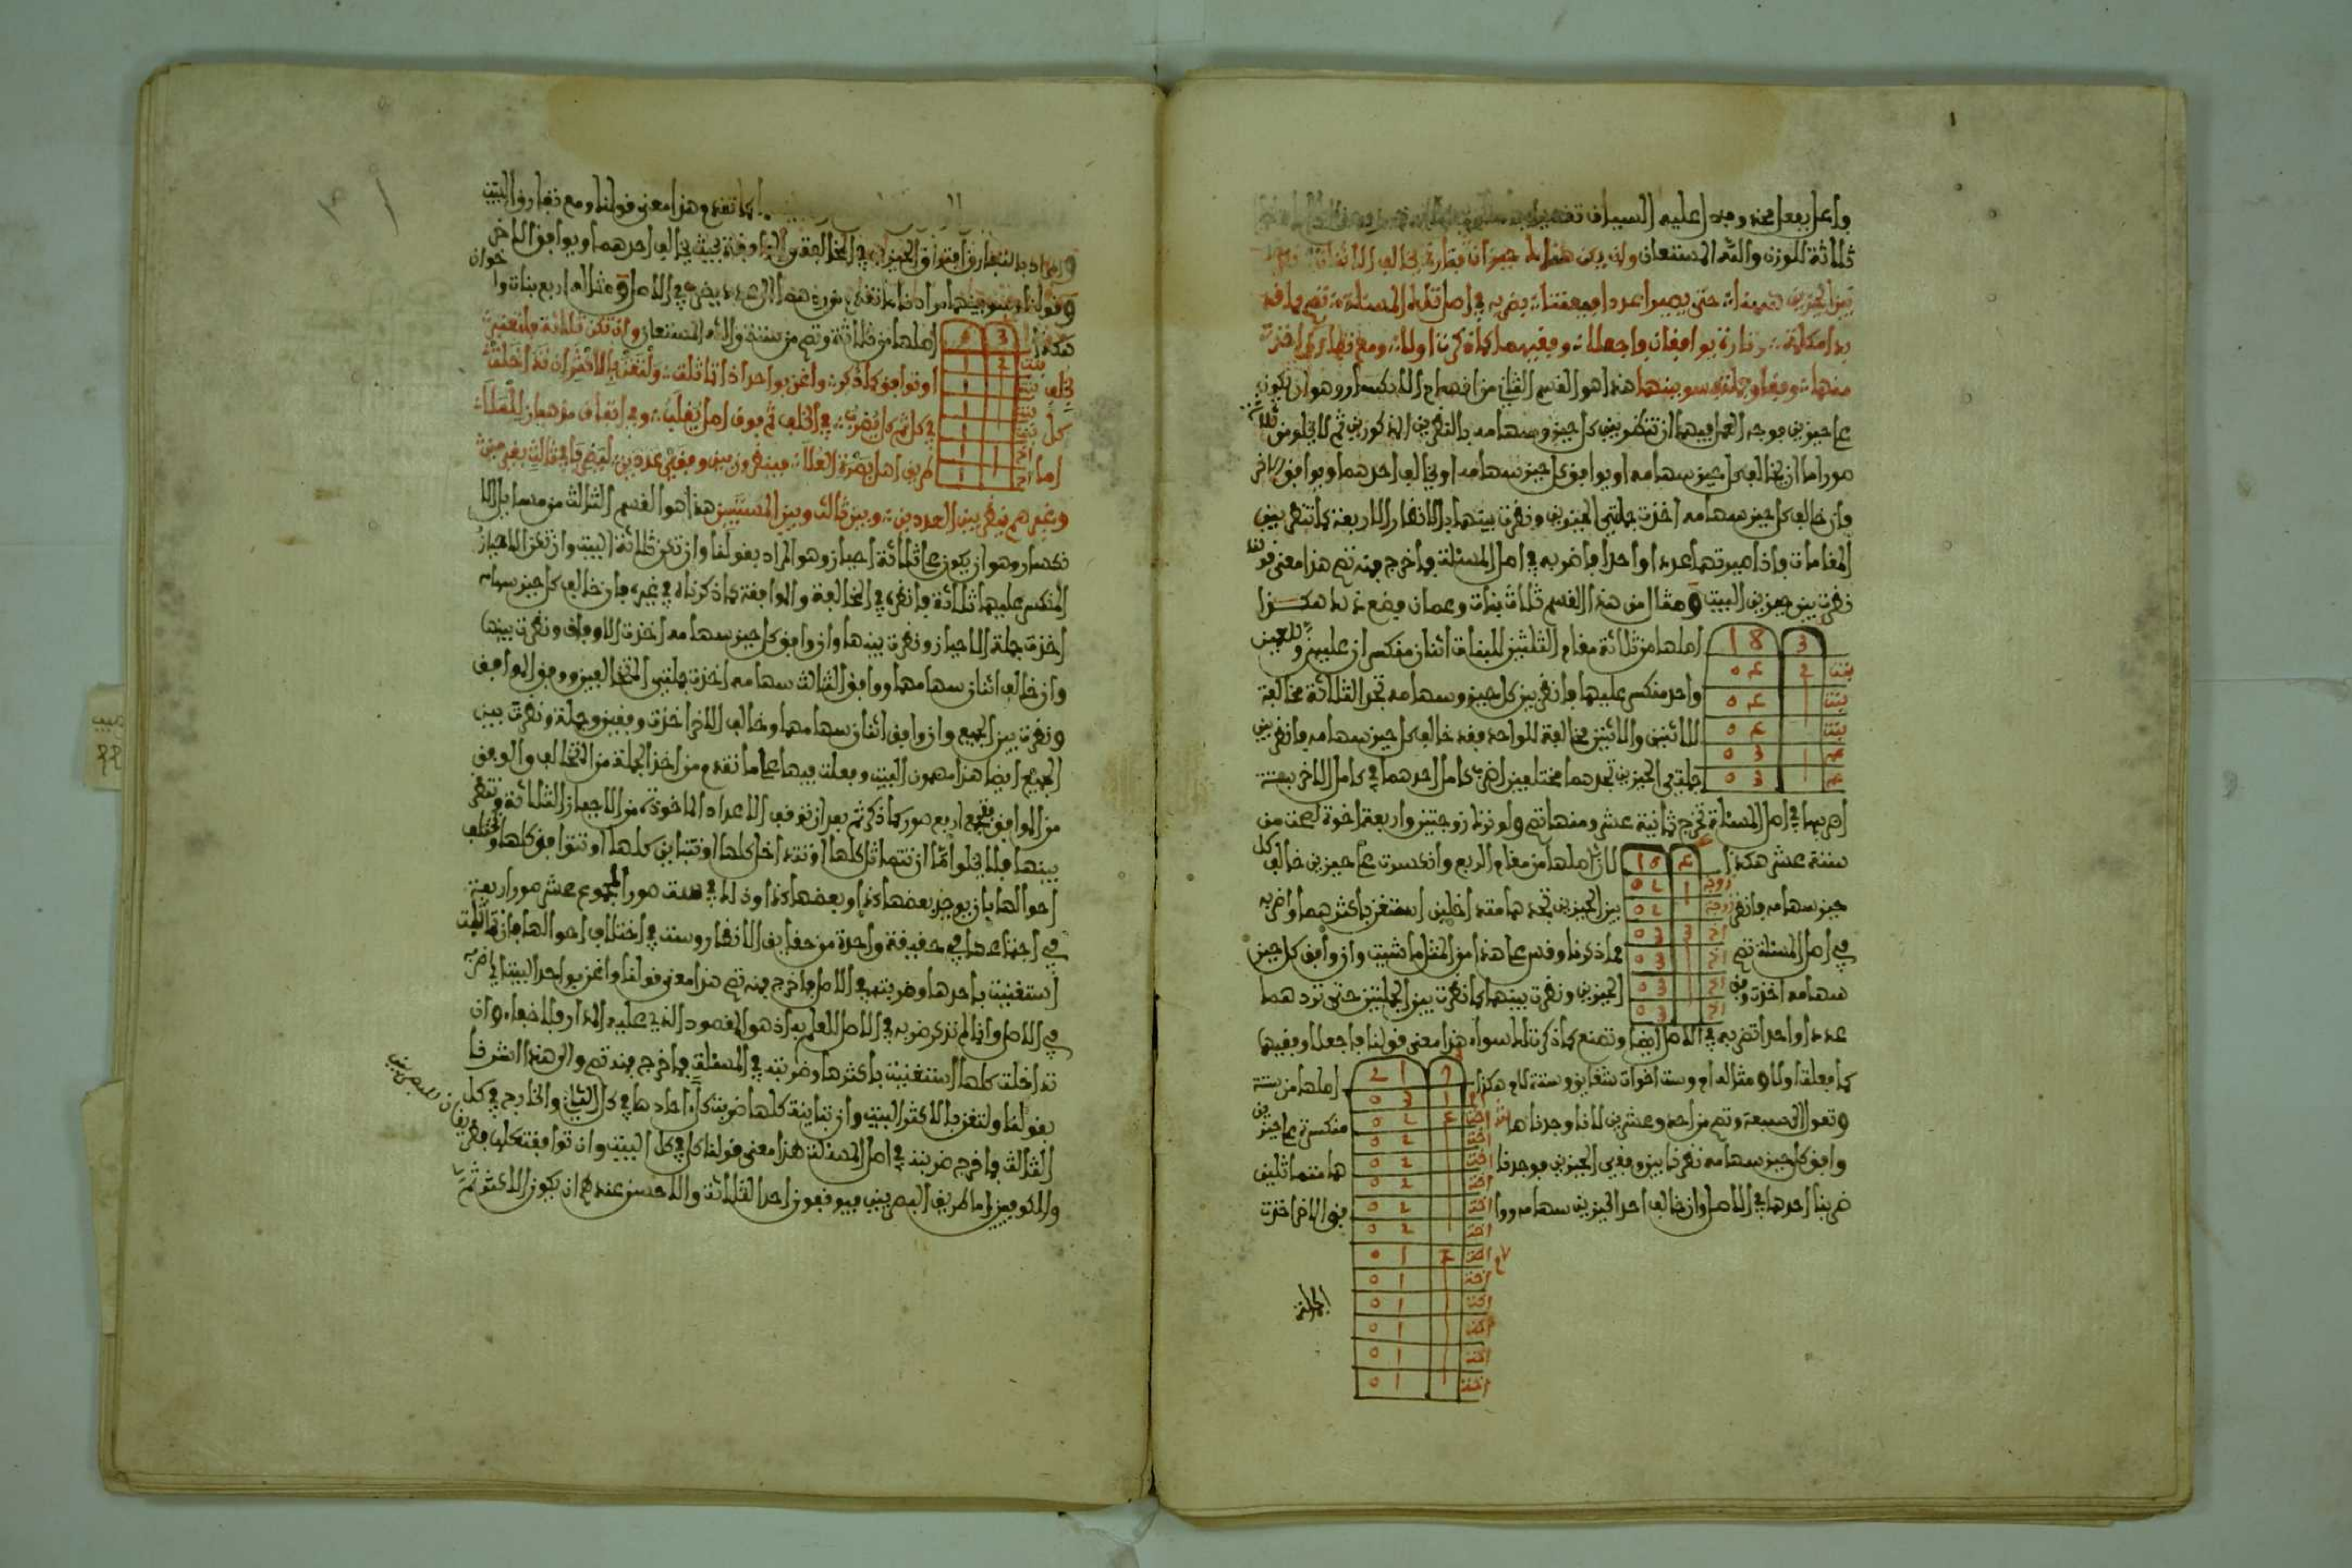 واعرابه مفعل محذوف دل عليه السياق تقديره
ثلاثة للوزن والله المستعان وان يكن هذا على حيزان فتارة يخالف الانثان
بين الحيزين حتى يصيرا عددا يضرب في اصل تلك المسئلة تصح
وتارة يوافقان فاجعلا وفقيهما كما ذكرت اولا ومع
منها وفقا وجملة وسو بينها هذا هو القسم الثاني من اقسام الانكسار وهو ان يكون
على حيزين فوجه العمل فيهما ان تنظر بين كل حيز وسهامه بالنظرين المذكورين ثم لا يخلو من ثلاث
صور اما ان يخالف كل حيز سهامه او يوافق كل حيز سهامه او يخالف احدهما ويوافق الاخر
فان خالف كل حيز سهامه اخذت جملتي الحيزين ونظرت بينهما بالانظار الاربعة كما تنظر بين
المقامات فاذا صيرتهما عددا واحدا فاضربه في اصل المسئلة فما خرج فمنه تصح هذا معنى قولنا
نظرت بين حيزين البيت ومثال من هذا القسم ثلاث بنات وعمان فضع ذلك هكذا
3 18
بنت 2 04
بنت 04
بنت 04
عم 1 03
عم 03
اصلها من ثلاثة مقام الثلثين للبنات اثنان منكسران عليهن وللعمين
واحد منكسر عليهما فانظر بين كل حيز وسهامه تجد الثلاثة مخالفة
للاثنين والاثنين مخالفة للواحد فقد خالف كل حيز سهامه فانظر بين
جملتي الحيزين تجدهما مختلفين اضرب كامل احدهما في كامل الاخر بستة
اضربها في اصل المسئلة تخرج ثمانية عشر ومنها تصح ولو ترك زوجتين واربعة اخوة لصحت من
ستة عشر هكذا
4 16
زوجة 1 02
زوجة 02
اخ 3 03
اخ 03
اخ 03
اخ 03
لان اصلها من مقام الربع وانكسرت على حيزين خالف كل
حيز سهامه فانظر بين الحيزين تجدهما متداخلين استغن باكثرهما واضربه
في اصل المسئلة تصح مما ذكرنا وقس على هذا من المثل ما شئت وان وافق كل حيز
سهامه اخذت وفق الحيزين ونظرت بينهما كما نظرت بين الجملتين حتى تردهما
عددا واحدا تضربه في الاصل ايضا وتصنع كما ذكرت لك سواء هذا معنى قولنا فاجعلا وفقيهما
كما فعلت اولا ومثاله ام وست اخوات شقايق وستة لام هكذا اصلها من ستة
وتعول لسبعة وتصح من احد وعشرين لانا وجدناها منكسرة على حيزين
وافق كل حيز سهامه نظرنا بين وفقي الحيزين فوجدناهما متماثلين
ضربنا احدها في الاصل وان خالف احد الحيزين سهامه ووافق الاخر اخذت
7 21
ام 1 03
اخت 4 02
اخت 02
اخت 02
اخت 02
اخت 02
اخت 02
اخت 2 01
اخت 01
اخت 01
اخت 01
اخت 01
اخت 01
الجملة
كما تقدم هذا معنى قولنا ومع تفارق البيت
والمراد بالتفارق افتراق الحيزين في المخالفة والموافقة بحيث يخالف احدهما ويوافق الاخر
وقولنا وسو بينهما مرادنا ما تقدم من ردهما الى عدد يضرب في الاصل ومثاله اربع بنات واخوان
هكذا
3 6
بنت 2 1
بنت 1
بنت 1
بنت 1
اخ 1 1
اخ 1
اصلها من ثلاثة وتصح من ستة والله المستعان وان تكن ثلاثة
يخلف او توافق كما ذكر واغن بواحد اذا تماثلت ولتغن بالاكثر ان تداخلت
كل في كل ثم كل يضرب في الخلف ثم فوق اصل يغلب وفي اتفاق مذهبان للملا
اما طريق اهل بصرة العلا فينظرون بين وفقي عددين
وغيرهم ينظر بين العددين وبين ثالث وبين المسنين هذا هو القسم الثالث من مسايل الا
نكسار وهو ان يكون على ثلاثة احياز وهو المراد بقولنا وان تكن ثلاثة البيت وان تكن الاحياز
المنكسر عليها ثلاثة فانظر في المخالفة والموافقة كما ذكرناه في غيره فان خالف كل حيز سهامه
اخذت جملة الاحياز ونظرت بينها وان وافق كل حيز سهامه اخذت الاوفاق ونظرت بينها
وان خالف اثنان سهامهما ووافق الثالث سهامه اخذت جملتي المتخالفين ووفق الموافق
ونظرت بين الجميع وان وافق اثنان سهامهما وخالف الاخر اخذت وفقين وجملة ونظرت بين
الجميع ايضا هذا مضمون البيت وفعلت فيها على ما تقدم من اخذ الجملة من المتخالف والوفق
من الموافق فتجمع اربع صور كما ذكر ثم بعد ان توقف الاعداد الماخوذة من الاحياز الثلاثة وتنظر
بينها فلا يخلو اما ان تتماثل كلها او تتداخل كلها او تتباين كلها او تتوافق كلها وتختلف
احوالها بان يوجد بعضها كذا وبعضها كذا وذلك في ست صور المجموع عشر صور اربعة
في اجتماعها في حقيقة واحدة من حقايق الانظار وست في اختلاف احوالها فان تماثلت
استغنيت باحدها وضربته في الاصل فما خرج فمنه تصح هذا معنى قولنا واغن بواحد البيت اي اضربه
في الاصل وانما لم نذكر ضربه في الاصل للعلم به اذ هو المقصود الذي عليه المدار فلا خفاء وان
تداخلت كلها استغنيت باكثرها وضربته في المسئلة فما خرج فمنه تصح والى هذا اشرنا
بقولنا ولتغن بالاكثر البيت وان تباينت كلها ضربت كل احادها في كل الثاني والخارج في كل
الثالث فما خرج ضربته في اصل المسئلة هذا معنى قولنا كل في كل البيت وان توافقت كلها فطريقان للبصريين
والكوفيين اما طريق البصريين فيوقفون احد الثلاثة والاحسن عندهم ان يكون الاكثر ثم